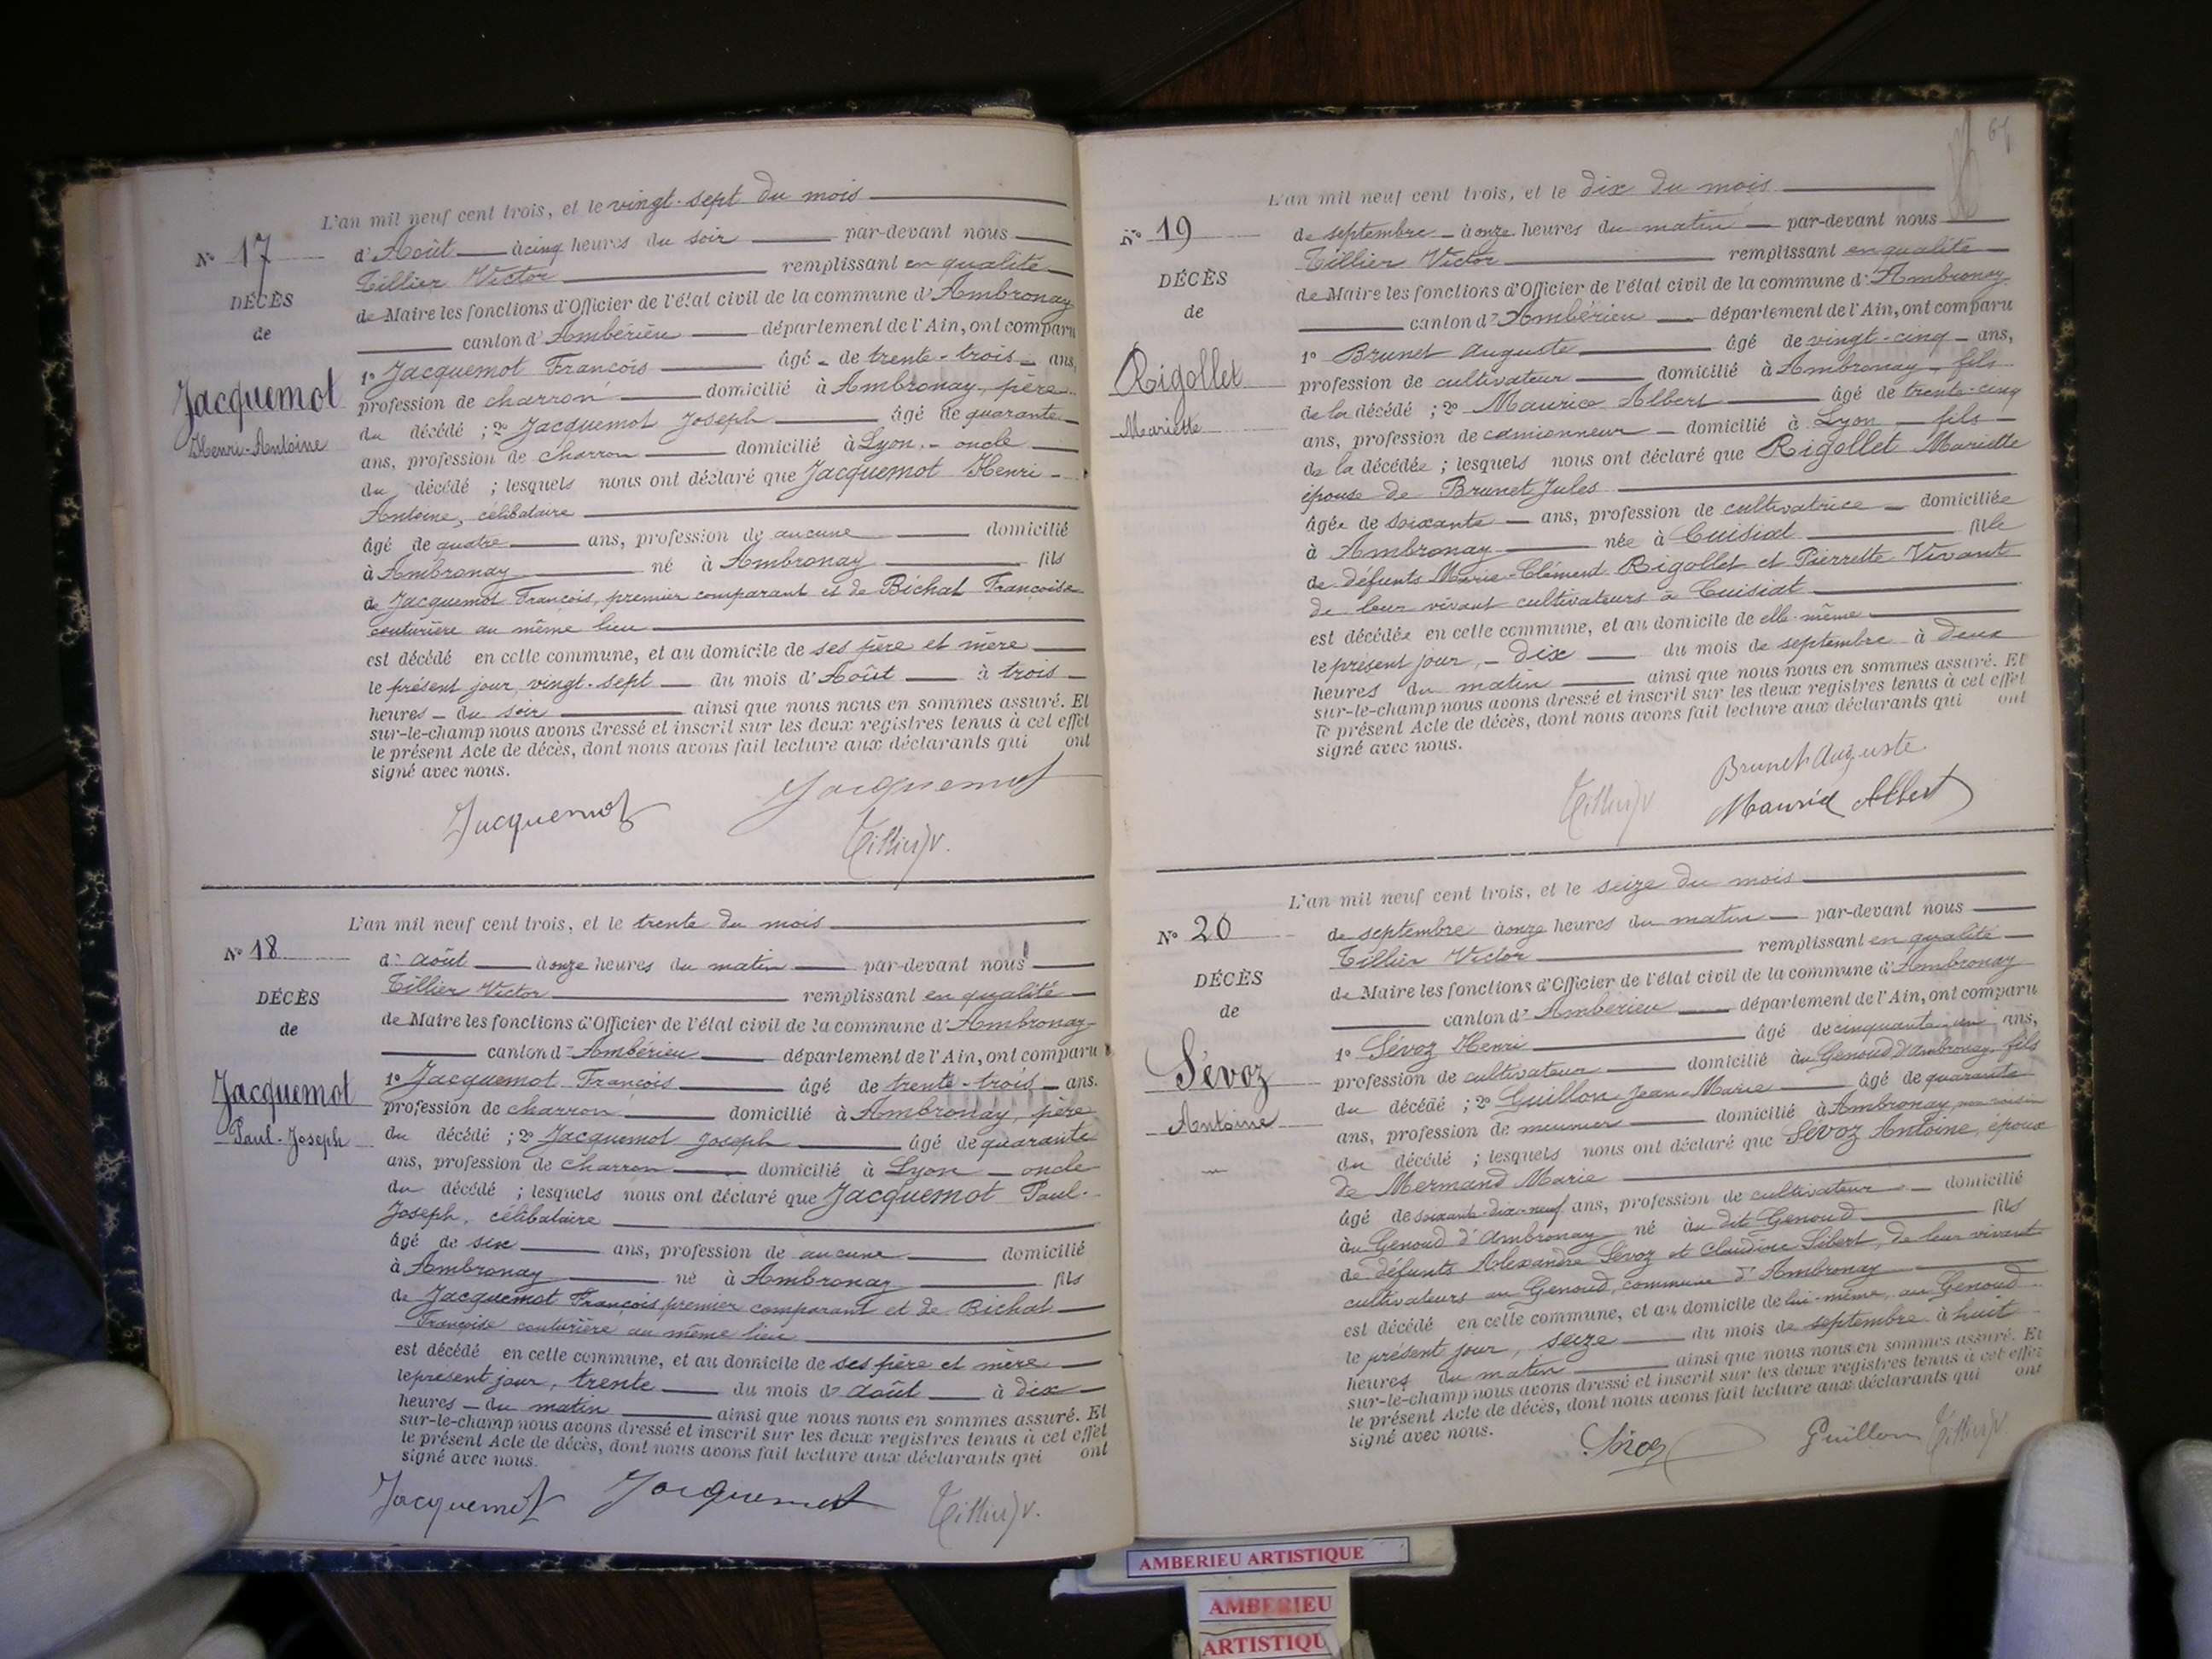 L'an mil neuf cent trois, et le vingt-sept du mois
N° 17
d'Août à cinq heures du soir par-devant nous
Tillier Victor remplissant en qualité
DÉCÈS
de Maire les fonctions d'Officier de l'état civil de la commune d'Ambronay
de
canton d'Ambérieu département de l'Ain, ont comparu
1° Jacquemot François âgé de trente-trois ans,
Jacquemot
profession de charron domicilié à Ambronay, père
Henri-Antoine
du décédé ; 2° Jacquemot Joseph âgé de quarante
ans, profession de charron domicilié à Lyon, oncle
du décédé ; lesquels nous ont déclaré que Jacquemot Henri-
Antoine, célibataire
âgé de quatre ans, profession de aucune domicilié
à Ambronay né à Ambronay fils
de Jacquemot François, premier comparant et de Bichat Françoise
couturière au même lieu
est décédé en cette commune, et au domicile de ses père et mère
le présent jour, vingt-sept du mois d'Août à trois
heures du soir ainsi que nous nous en sommes assuré. Et
sur-le-champ nous avons dressé et inscrit sur les deux registres tenus à cet effet
le présent Acte de décès, dont nous avons fait lecture aux déclarants qui ont
signé avec nous.
Jacquemot Jacquemot
Tillier V.
L'an mil neuf cent trois, et le trente du mois
N° 18
d'août à onze heures du matin par-devant nous
Tillier Victor remplissant en qualité
DÉCÈS
de Maire les fonctions d'Officier de l'état civil de la commune d'Ambronay
de
canton d'Ambérieu département de l'Ain, ont comparu
1° Jacquemot François âgé de trente-trois ans.
Jacquemot
profession de charron domicilié à Ambronay, père
Paul-Joseph
du décédé ; 2° Jacquemot Joseph âgé de quarante
ans, profession de charron domicilié à Lyon oncle
du décédé ; lesquels nous ont déclaré que Jacquemot Paul-
Joseph, célibataire
âgé de six ans, profession de aucune domicilié
à Ambronay né à Ambronay fils
de Jacquemot François premier comparant et de Bichat
Françoise couturière au même lieu
est décédé en cette commune, et au domicile de ses père et mère
le présent jour, trente du mois d'août à dix
heures du matin ainsi que nous nous en sommes assuré. Et
sur-le-champ nous avons dressé et inscrit sur les deux registres tenus à cet effet
le présent Acte de décès, dont nous avons fait lecture aux déclarants qui ont
signé avec nous.
Jacquemot Jacquemot Tillier V.
L'an mil neuf cent trois, et le dix du mois
N° 19
de septembre à onze heures du matin par-devant nous
Tillier Victor remplissant en qualité
DÉCÈS
de Maire les fonctions d'Officier de l'état civil de la commune d'Ambronay
de
canton d'Ambérieu département de l'Ain, ont comparu
1° Brunet Auguste âgé de vingt-cinq ans,
Rigollet
profession de cultivateur domicilié à Ambronay fils
Mariette
de la décédé ; 2° Maurice Albert âgé de trente-cinq
ans, profession de camionneur domicilié à Lyon fils
de la décédée ; lesquels nous ont déclaré que Rigollet Mariette
épouse de Brunet Jules
âgée de soixante ans, profession de cultivatrice domiciliée
à Ambronay née à Cuisiat fille
de défunts Marie-Clément Rigollet et Pierrette Vivant
de leur vivant cultivateurs à Cuisiat
est décédée en cette commune, et au domicile de elle-même
le présent jour, dix du mois de septembre à deux
heures du matin ainsi que nous nous en sommes assuré. Et
sur-le-champ nous avons dressé et inscrit sur les deux registres tenus à cet effet
le présent Acte de décès, dont nous avons fait lecture aux déclarants qui ont
signé avec nous.
Brunet Auguste
Tillier V Maurice Albert
L'an mil neuf cent trois, et le seize du mois
N° 20
de septembre à onze heures du matin par-devant nous
Tillier Victor remplissant en qualité
DÉCÈS
de Maire les fonctions d'Officier de l'état civil de la commune d'Ambronay
de
canton d'Ambérieu département de l'Ain, ont comparu
1° Sévoz Henri âgé de cinquante-un ans,
Sévoz
profession de cultivateur domicilié au Genoud d'Ambronay, fils
Antoine
du décédé ; 2° Guillon Jean-Marie âgé de quarante
ans, profession de meunier domicilié à Ambronay, non voisin
du décédé ; lesquels nous ont déclaré que Sévoz Antoine, époux
de Mermand Marie
âgé de soixante-dix-neuf ans, profession de cultivateur domicilié
au Genoud d'Ambronay né au dit Genoud fils
de défunts Alexandre Sévoz et Claudine Sibert, de leur vivant
cultivateurs au Genoud, commune d'Ambronay
est décédé en cette commune, et au domicile de lui-même, au Genoud
le présent jour, seize du mois de septembre à huit
heures du matin ainsi que nous nous en sommes assuré. Et
sur-le-champ nous avons dressé et inscrit sur les deux registres tenus à cet effet
le présent Acte de décès, dont nous avons fait lecture aux déclarants qui ont
signé avec nous.
Sévoz Guillon Tillier V.
AMBERIEU ARTISTIQUE
AMBERIEU
ARTISTIQU